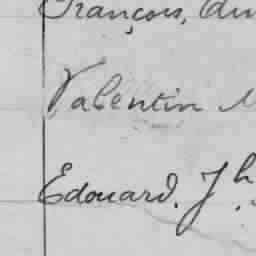 François,
Valentin
Edouard. Jh